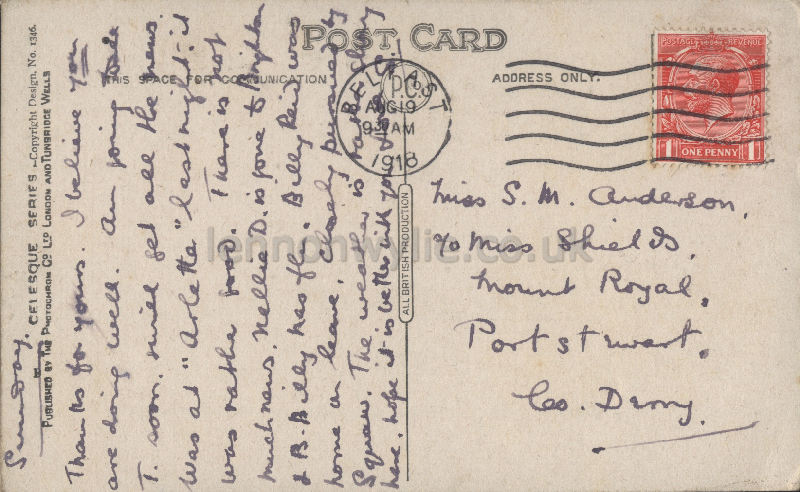 POST CARD
THIS SPACE FOR COMMUNICATION
ADDRESS ONLY.
CELESQUE SERIES.—Copyright Design, No. 1346.
PUBLISHED BY THE PHOTOCHROM CO LTD LONDON AND TUNBRIDGE WELLS
ALL BRITISH PRODUCTION
BELFAST
AUG 19
9 AM
1918
POSTAGE REVENUE
1 ONE PENNY 1
Sunday.
Thanks for yours. I believe you
are doing well. Am going to see
T. soon, will get all the news.
Was at "Arlette" last night: it
was rather good. There is not
much news. Nellie D. is gone to Brighton
& B. Billy has flu. Billy Reid was
home on leave, closely pursued by
Squaw. The weather is rather chilly
here, hope it is better with you.
Miss S. M. Anderson,
c/o Miss Shields,
Mount Royal,
Portstewart,
Co. Derry.
lennonwylie.co.uk